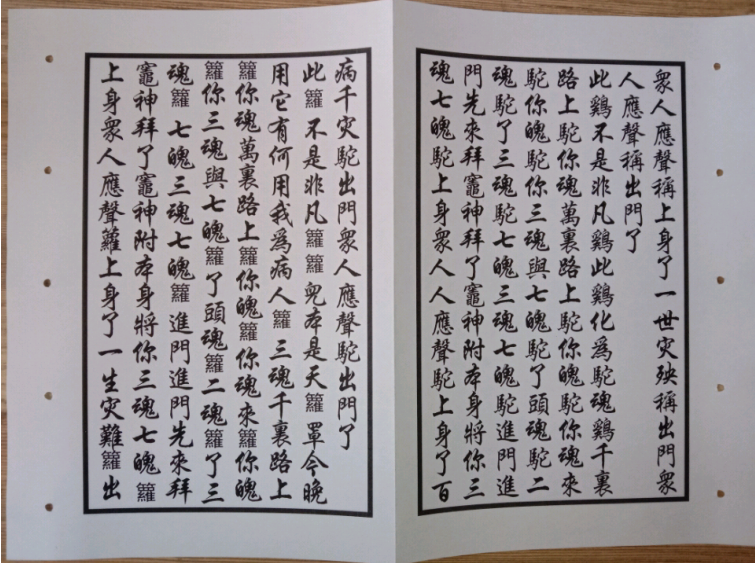 衆人應聲稱上身了一世灾殃稱出門衆
人應聲稱出門了
此鷄不是非凡鷄此鷄化爲駝魂鷄千裏
路上駝你魂萬裏路上駝你魄駝你魂來
駝你魄駝你三魂與七魄駝了頭魂駝二
魂駝了三魂駝七魄三魂七魄駝進門進
門先來拜竈神拜了竈神附本身將你三
魂七魄駝上身衆人人應聲駝上身了百
病千灾駝出門衆人應聲駝出門了
此籮不是非凡籮籮兜本是天籮罩今晚
用它有何用我爲病人籮三魂千裏路上
籮你魂萬裏路上籮你魄籮你魂來籮你魄
籮你三魂與七魄籮了頭魂籮二魂籮了三
魂籮七魄三魂七魄籮進門進門先來拜
竈神拜了竈神附本身將你三魂七魄籮
上身衆人應聲籮上身了一生灾難籮出